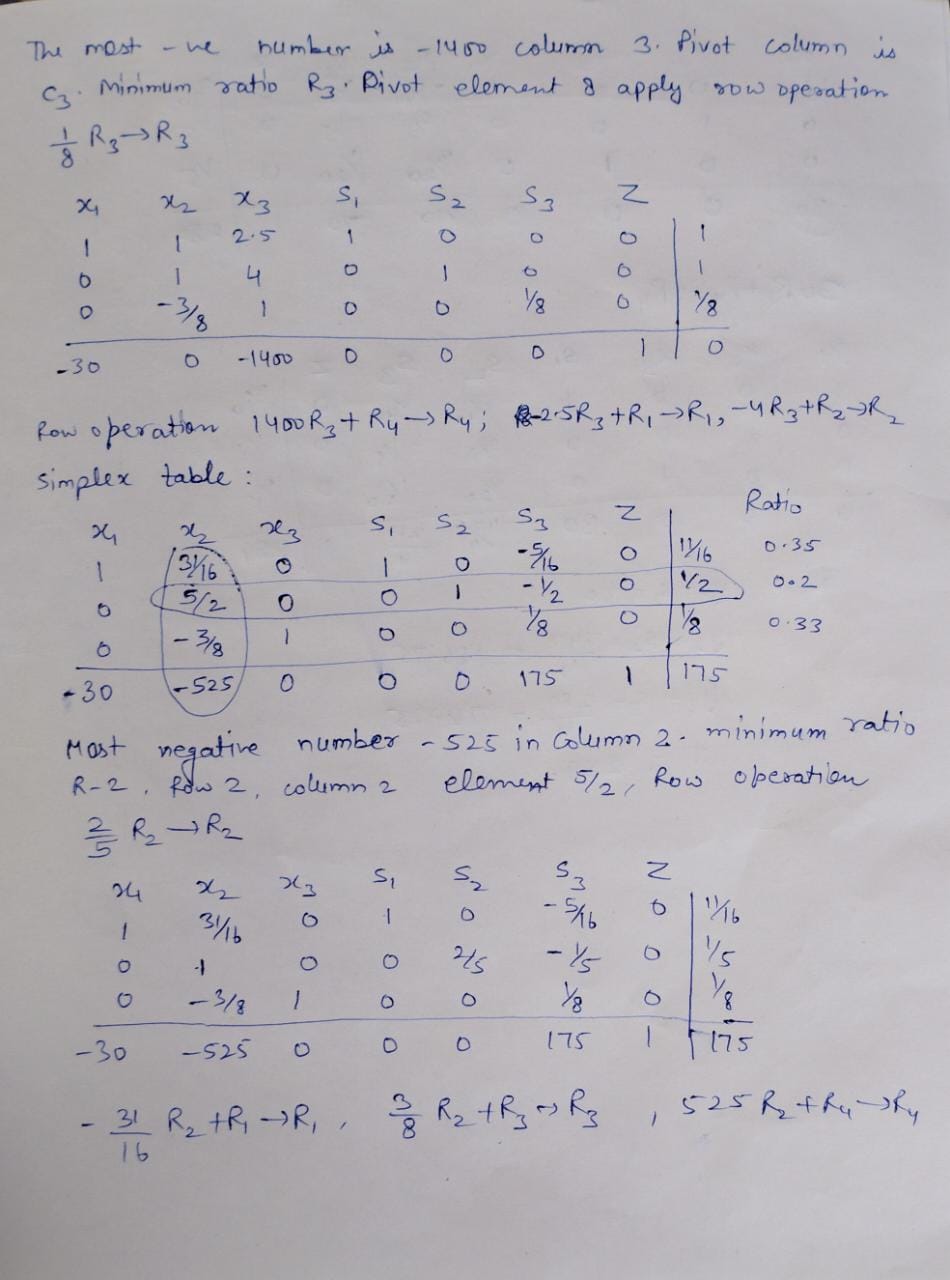 The most -ve number is -1400 column 3. Pivot column is
C3. Minimum ratio R3. Pivot element 8 apply row operation
1/8 R3→R3
x1 x2 x3 S1 S2 S3 Z
1 1 2.5 1 0 0 0 | 1
0 1 4 0 1 0 0 | 1
0 -3/8 1 0 0 1/8 0 | 1/8
-30 0 -1400 0 0 0 1 | 0
Row operation 1400R3+R4→R4; -2.5R3+R1→R1, -4R3+R2→R2
Simplex table :
x1 x2 x3 S1 S2 S3 Z | Ratio
1 31/16 0 1 0 -5/16 0 | 11/16 0.35
0 5/2 0 0 1 -1/2 0 | 1/2 0.2
0 -3/8 1 0 0 1/8 0 | 1/8 0.33
-30 -525 0 0 0 175 1 | 175
Most negative number -525 in Column 2. minimum ratio
R-2. Row 2, column 2 element 5/2, Row operation
2/5 R2→R2
x1 x2 x3 S1 S2 S3 Z
1 31/16 0 1 0 -5/16 0 | 11/16
0 1 0 0 2/5 -1/5 0 | 1/5
0 -3/8 1 0 0 1/8 0 | 1/8
-30 -525 0 0 0 175 1 | 175
-31/16 R2+R1→R1, 3/8 R2+R3→R3, 525R2+R4→R4